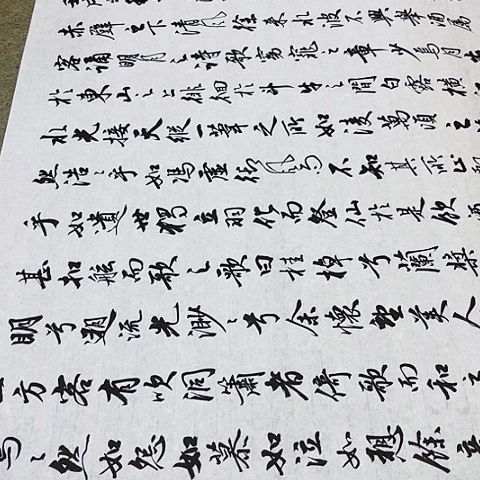 赤壁之下清風徐來水波不興舉酒屬
客誦明月之詩歌窈窕之章少焉月
於東山之上徘徊於斗牛之間白露橫
水光接天縱一葦之所如凌萬頃之
然浩々乎如馮虛御風而不知其所止
乎如遺世獨立羽化而登仙於是飲酒
甚扣舷而歌之歌曰桂棹兮蘭槳
明兮遡流光渺々兮余懷望美人
方客有吹洞簫者倚歌而和之
然如怨如慕如泣如訴餘音